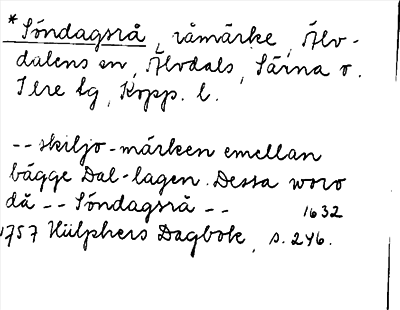 * Söndagsrå, råmärke, Älv-
dalens sn, Älvdals, Särna o.
Idre tg, Kopp. l.
-- skiljo-märken emellan
bägge Dal-lagen. Dessa woro
då -- Söndagsrå -- 1632
1757 Hülphers Dagbok, s. 246.